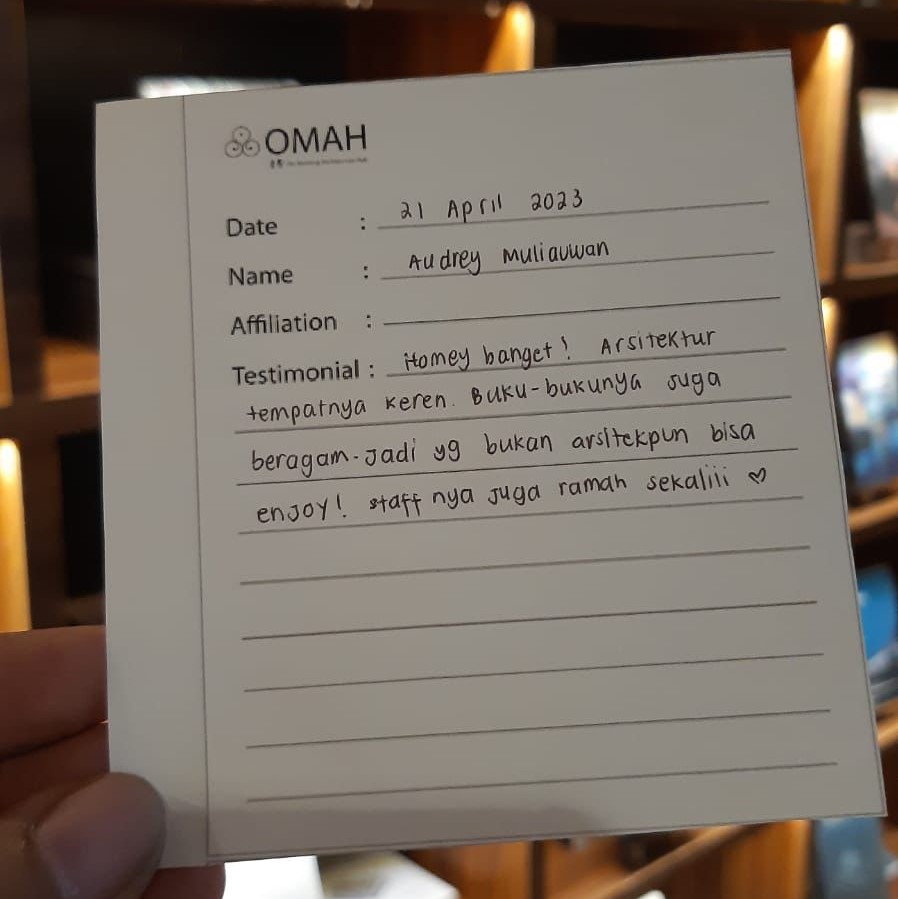 OMAH
Date : 21 April 2023
Name : Audrey Muliauwan
Affiliation :
Testimonial : Homey banget! Arsitektur
tempatnya keren. Buku-bukunya juga
beragam. Jadi yg bukan arsitekpun bisa
enjoy! staff nya juga ramah sekaliii ♡